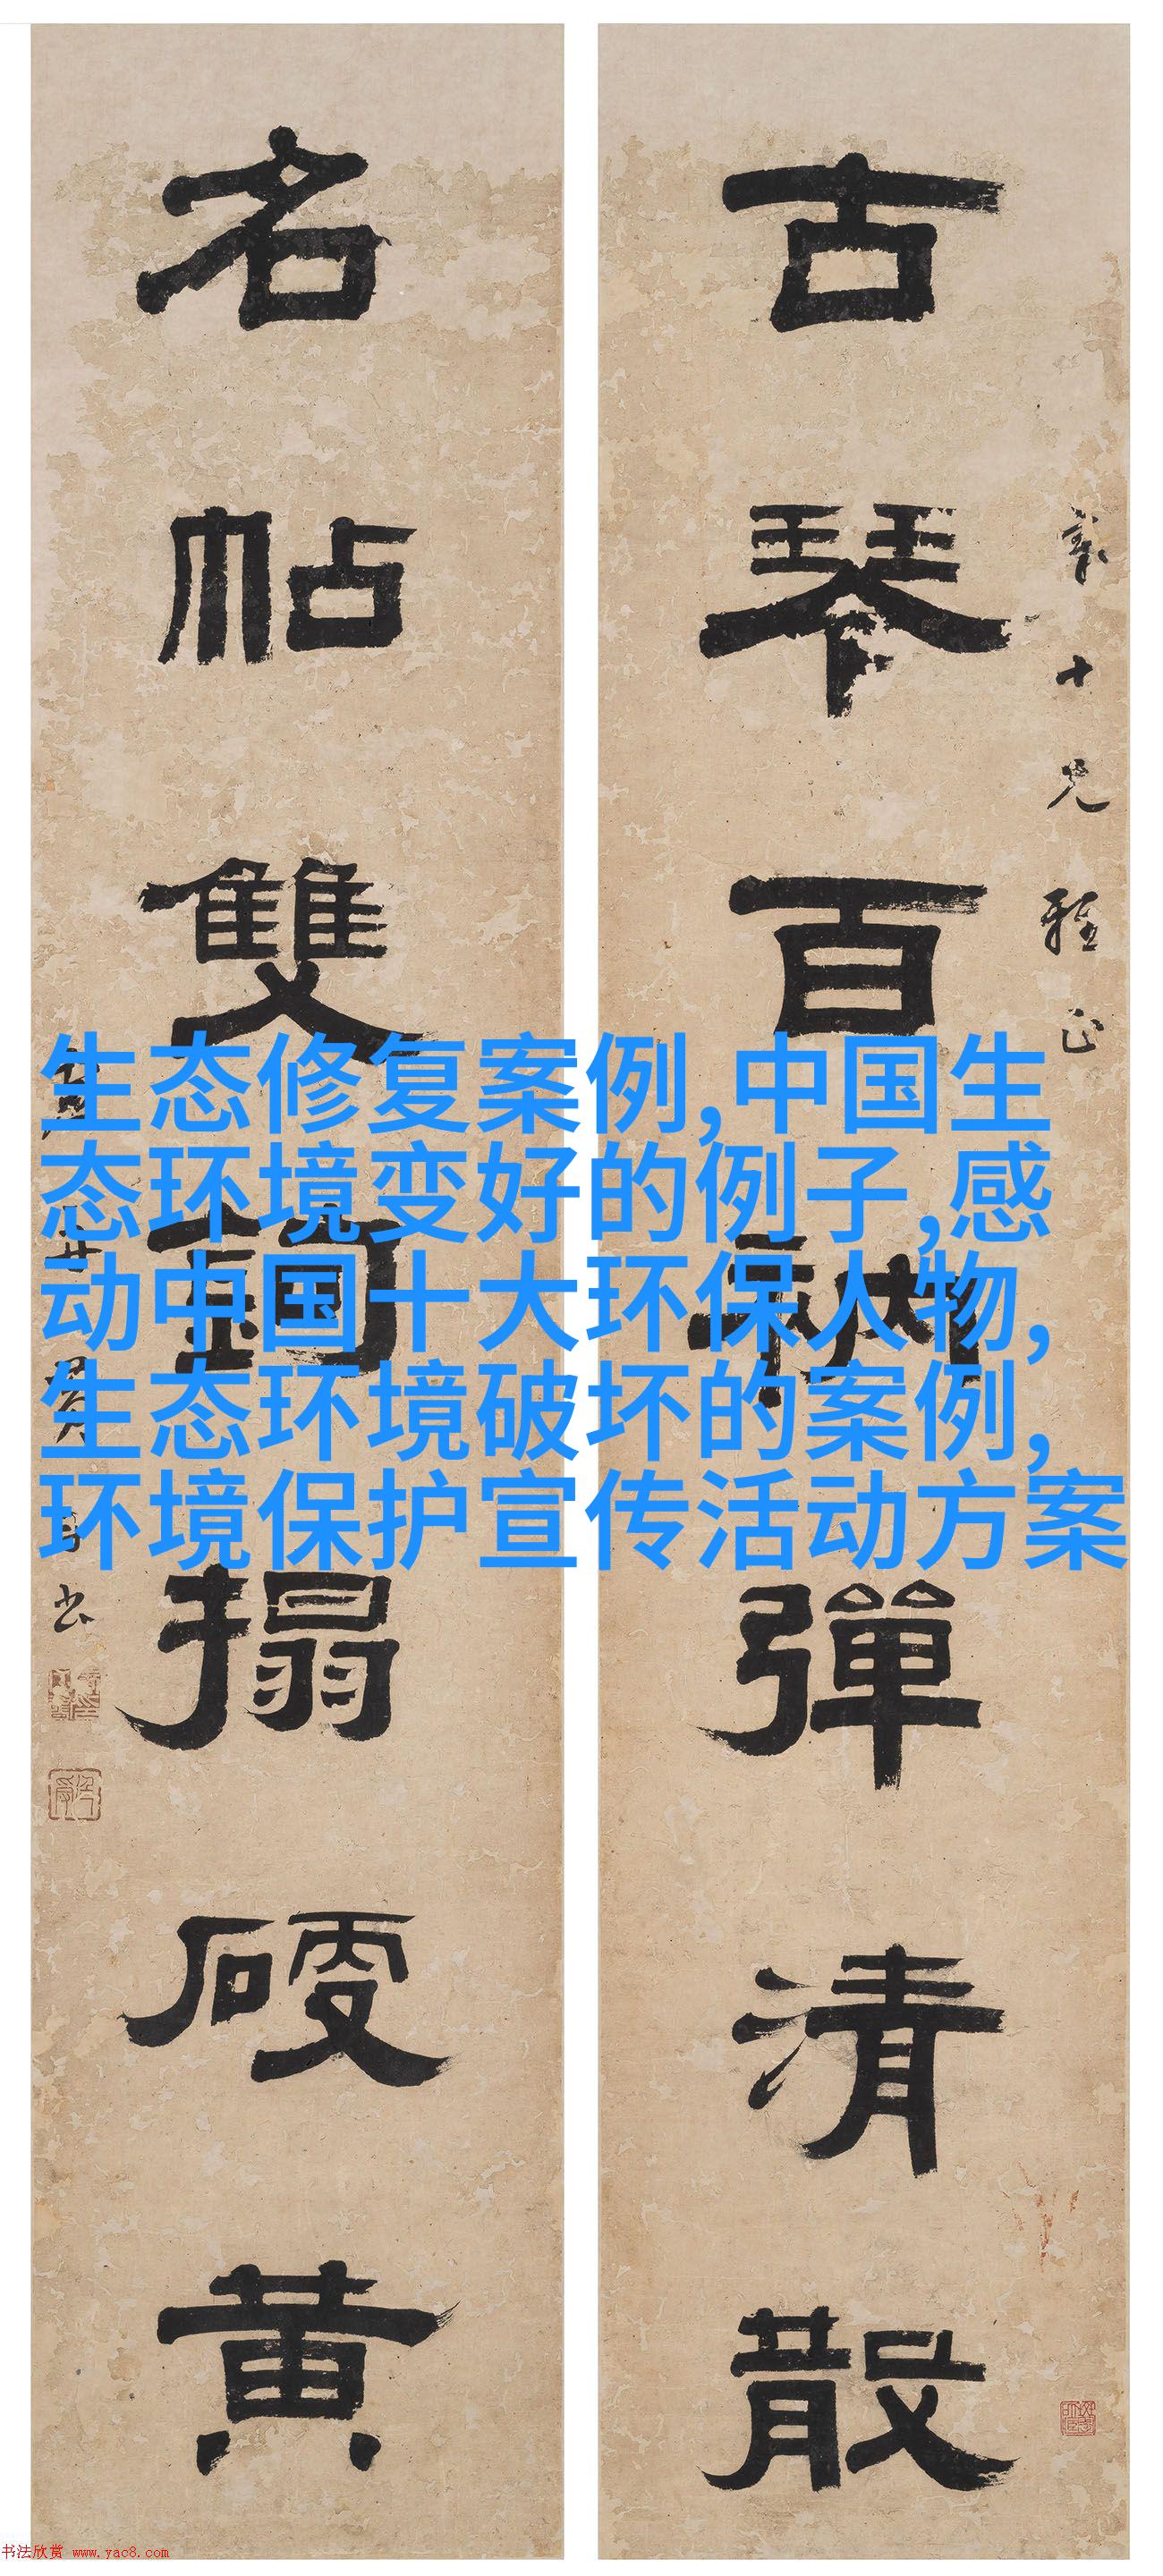 古琴百衲彈清散
十兄雅正
名帖雙鉤搨硬黄
書
生态修复案例,中国生
态环境变好的例子,感
动中国十大环保人物,
生态环境破坏的案例,
环境保护宣传活动方案
书法欣赏 www.yac8.com